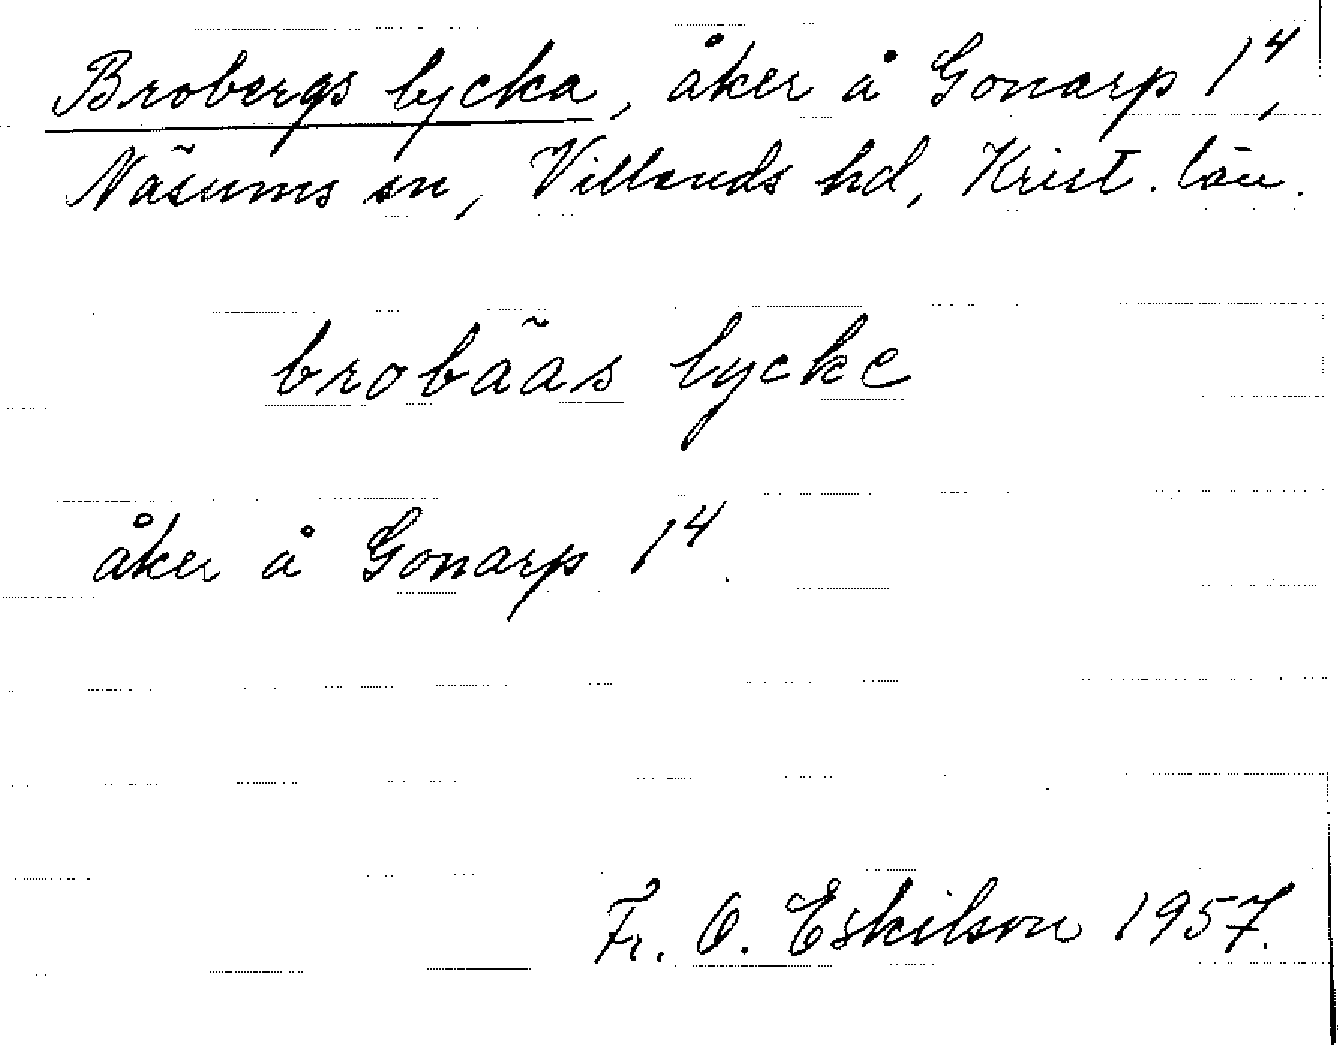 Brobergs lycka, åker å Gonarp 1⁴,
Näsums sn, Villands hd, Krist. län.
brobäas lycke
åker å Gonarp 1⁴.
Fr. O. Eskilson 1957.